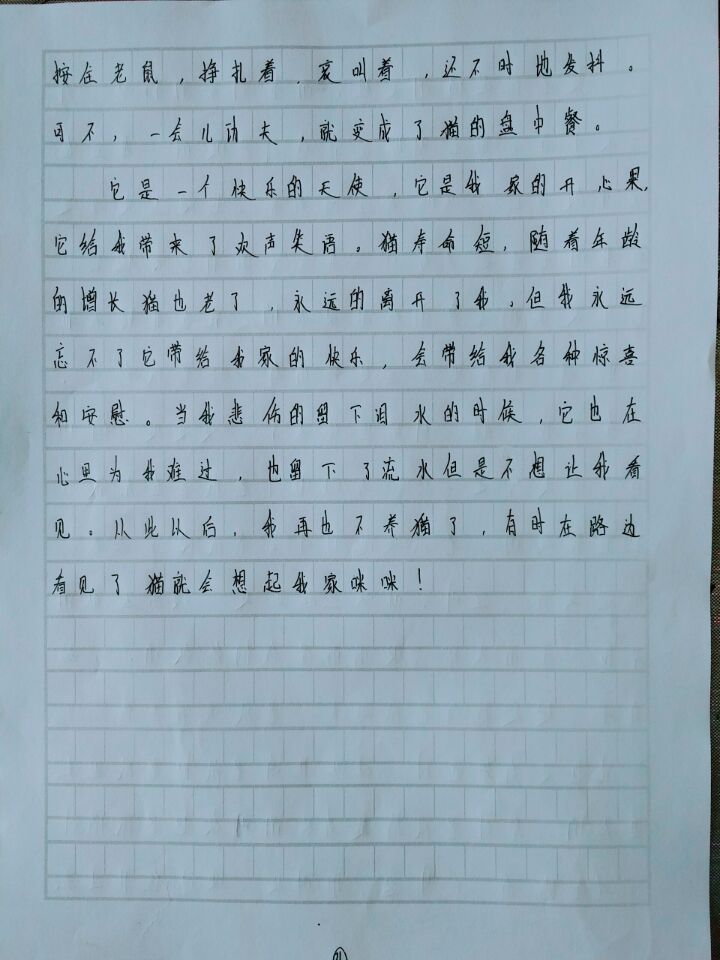 按住老鼠，挣扎着，哀叫着，还不时地发抖。
可不，一会儿功夫，就变成了猫的盘中餐。
它是一个快乐的天使，它是我家的开心果，
它给我带来了欢声失语。猫寿命短，随着年龄
的增长猫也老了，永远的离开了我，但我永远
忘不了它带给我家的快乐，会带给我各种惊喜
和安慰。当我悲伤的留下泪水的时候，它也在
心里为我难过，也留下了流水但是不想让我看
见。从此以后，我再也不养猫了，有时在路边
看见了猫就会想起我家咪咪！